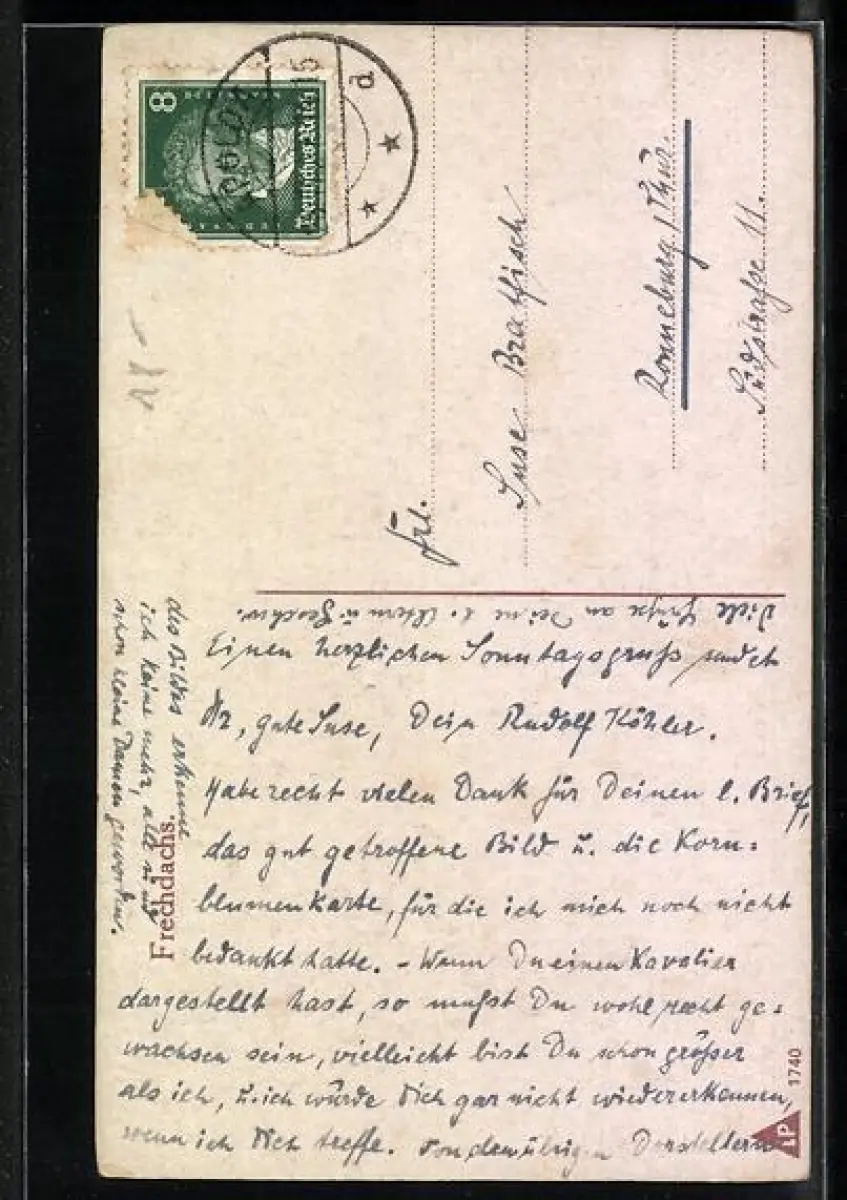 8
Deutsches Reich
15
d
Frl.
Suse Bratfisch
Ronneburg/Thür.
Südstraße 11.
Viele Grüße an Deine l. Eltern u. Geschw.
Einen herzlichen Sonntagsgruß sendet
Dir, gute Suse, Dein Rudolf Köhler.
Habe recht vielen Dank für Deinen l. Brief,
das gut getroffene Bild u. die Korn-
blumenkarte, für die ich mich noch nicht
bedankt hatte. - Wenn Du einen Kavalier
dargestellt hast, so mußt Du wohl recht ge-
wachsen sein, vielleicht bist Du schon größer
als ich, u. ich würde Dich gar nicht wiedererkennen,
wenn ich Dich treffe. Von den übrigen Darstellern
des Bildes erkenne
ich keine mehr, alle sind
schon kleine Damen geworden.
Frechdachs.
1740